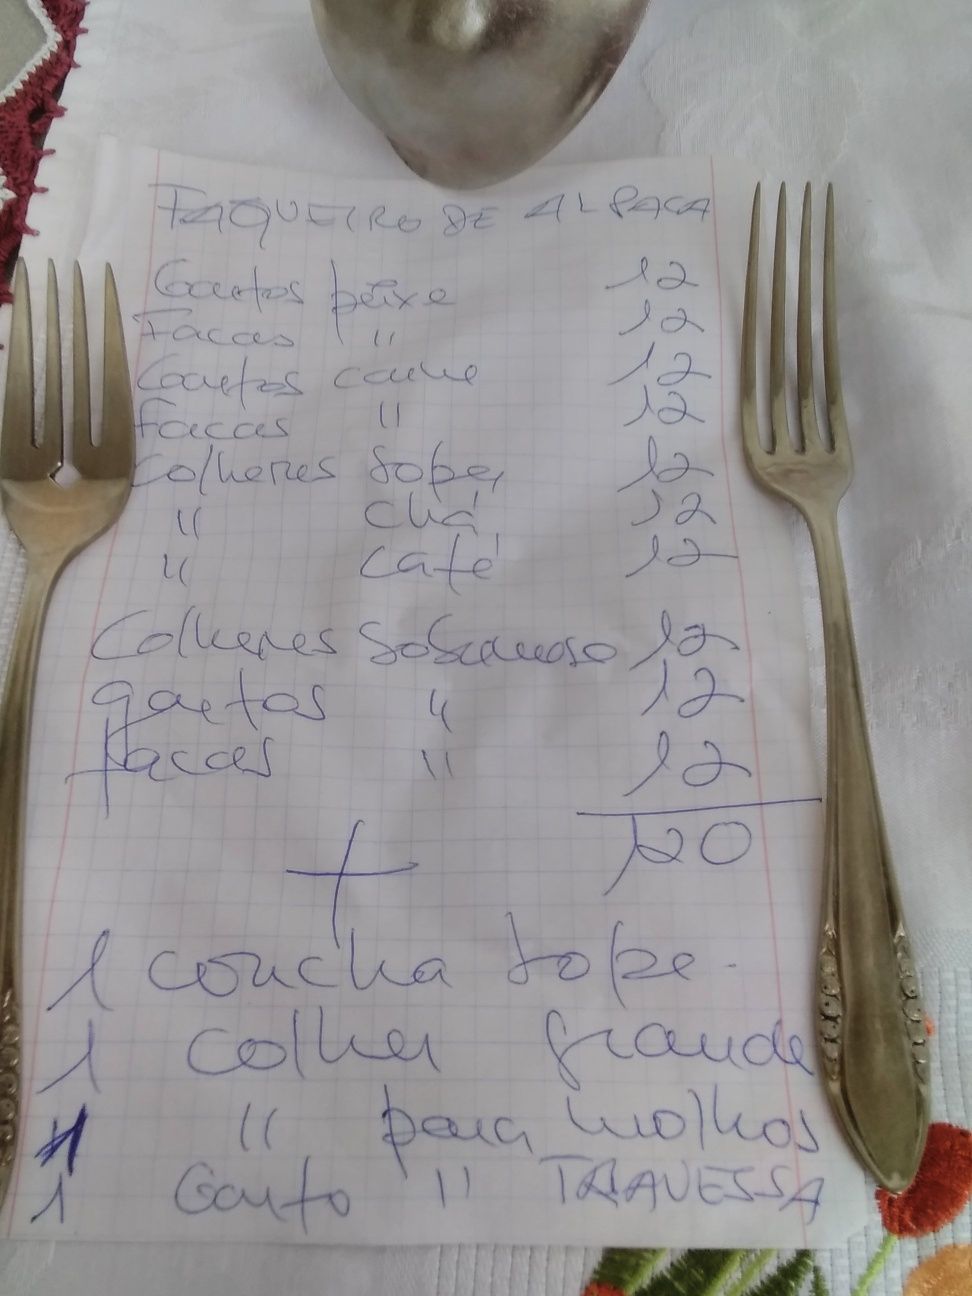 FAQUEIRO DE ALPACA
Garfos peixe 12
Facas " 12
Garfos carne 12
Facas " 12
Colheres Sopa 12
" chá 12
" café 12
Colheres Sobremesa 12
garfos " 12
facas " 12
120
+
1 concha Sopa.
1 colher grande
1 " para molhos
1 Garfo " TRAVESSA